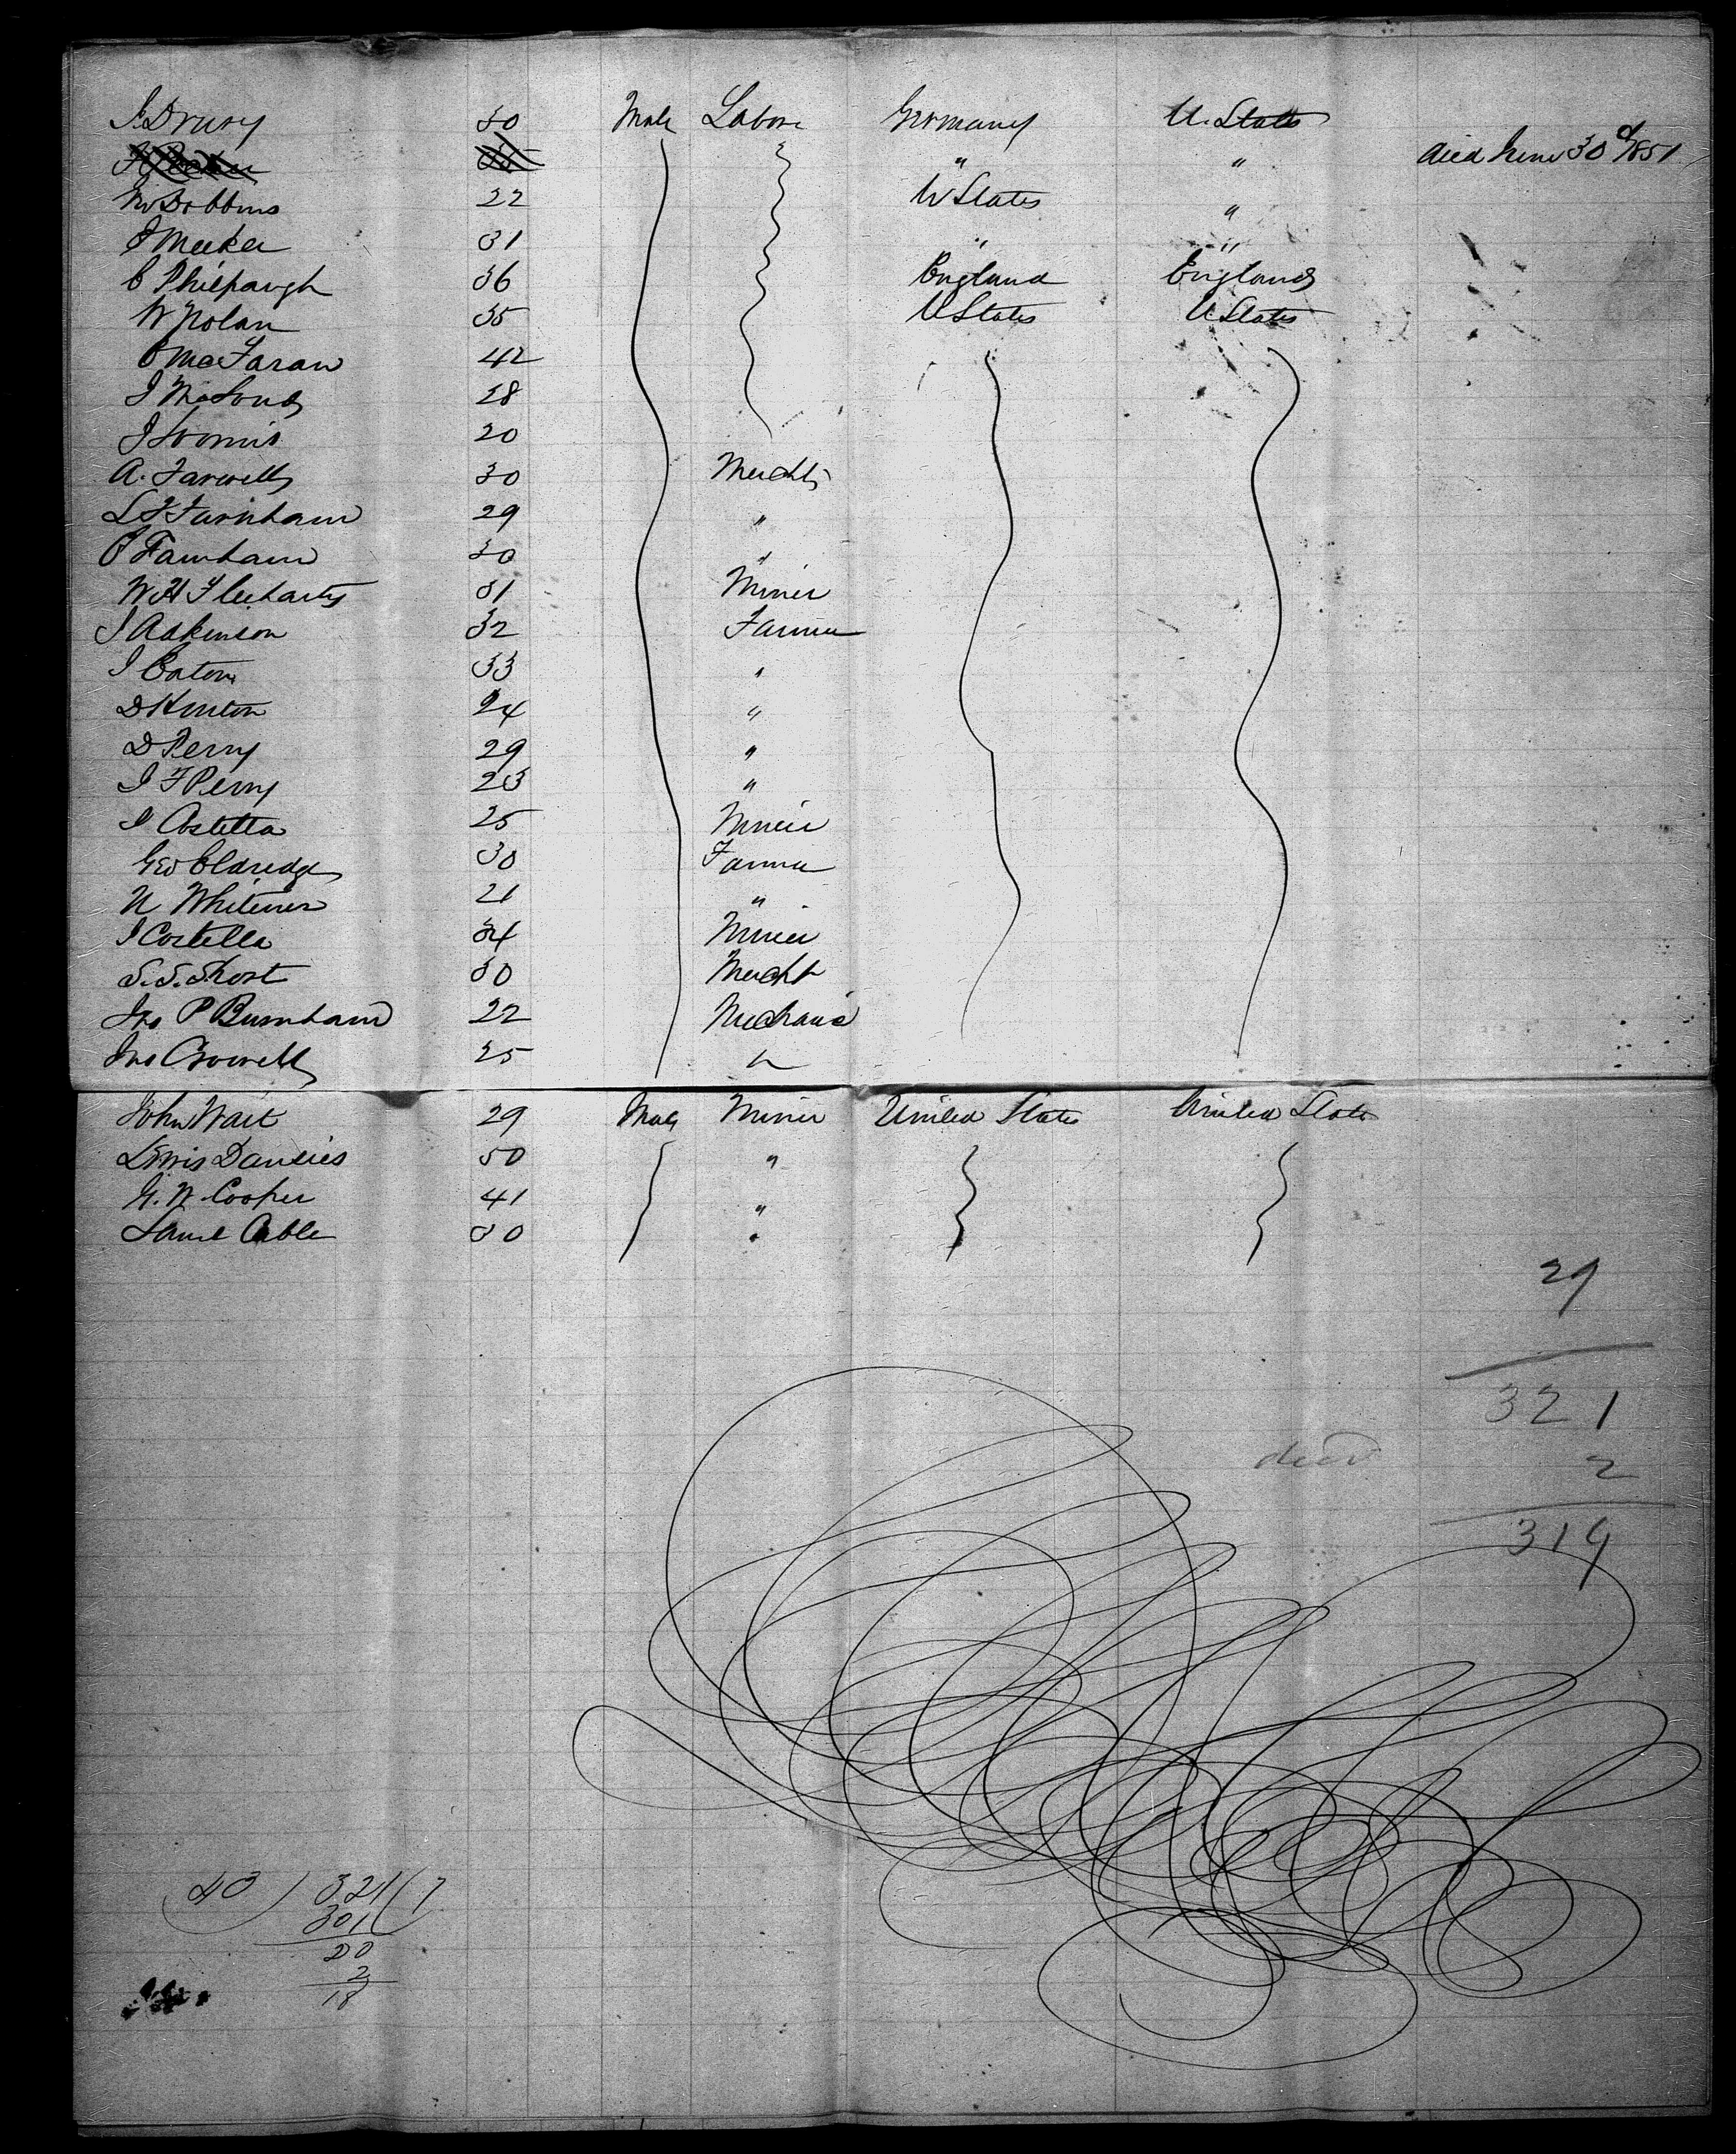 J. Drury 30 Male Labor Germany U. States
" " died June 30th/851
Dobbins 22 U States "
J Meeker 31 " "
C Philpaugh 36 England England
W Nolan 35 U States U States
C McFaran 42
J McLoud 28
J Loomis 20
A. Farwell 30 Mercht
L F Farnham 29 "
P Farnham 30 "
W H Fleeharty 31 Miner
J Adkinson 32 Farmer
J Eaton 33 "
D Hinton 24 "
D Perry 29 "
J F Perry 23 "
J Costella 25 Miner
Geo Eldredge 30 Farmer
N Whitener 21 "
J Costella 34 Miner
S. S. Short 30 Mercht
Jno P Burnham 22 Mechanic
Jno Crowell 25 "
John Wait 29 Male Miner United States United States
Lewis Daniels 50 "
G. W. Cooper 41 "
Saml Cable 30 "
29
321
died 2
319
43 ) 321 ( 7
301
20
2
18